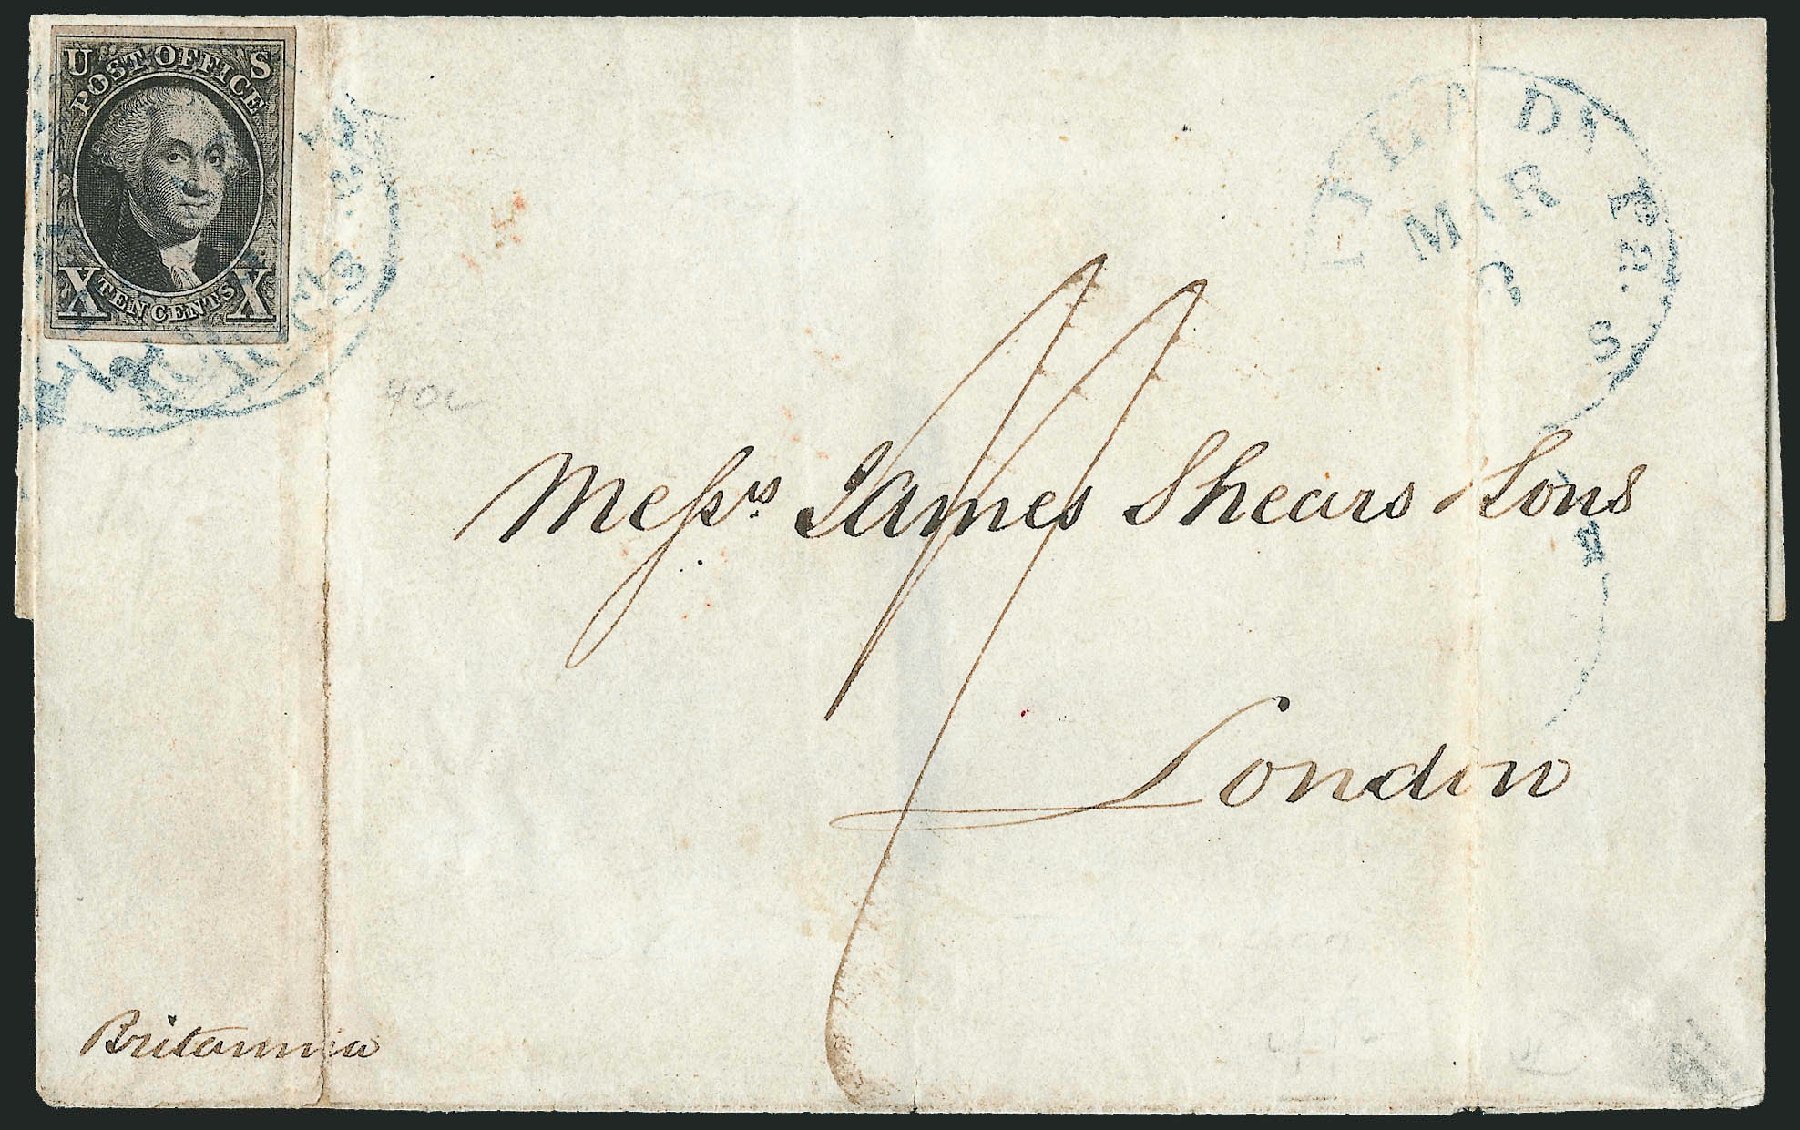 U S
POST OFFICE
X TEN CENTS X
PHILADA Pa.
MAR
S
40c
Mesrs James Shears & Sons
London
Britannia